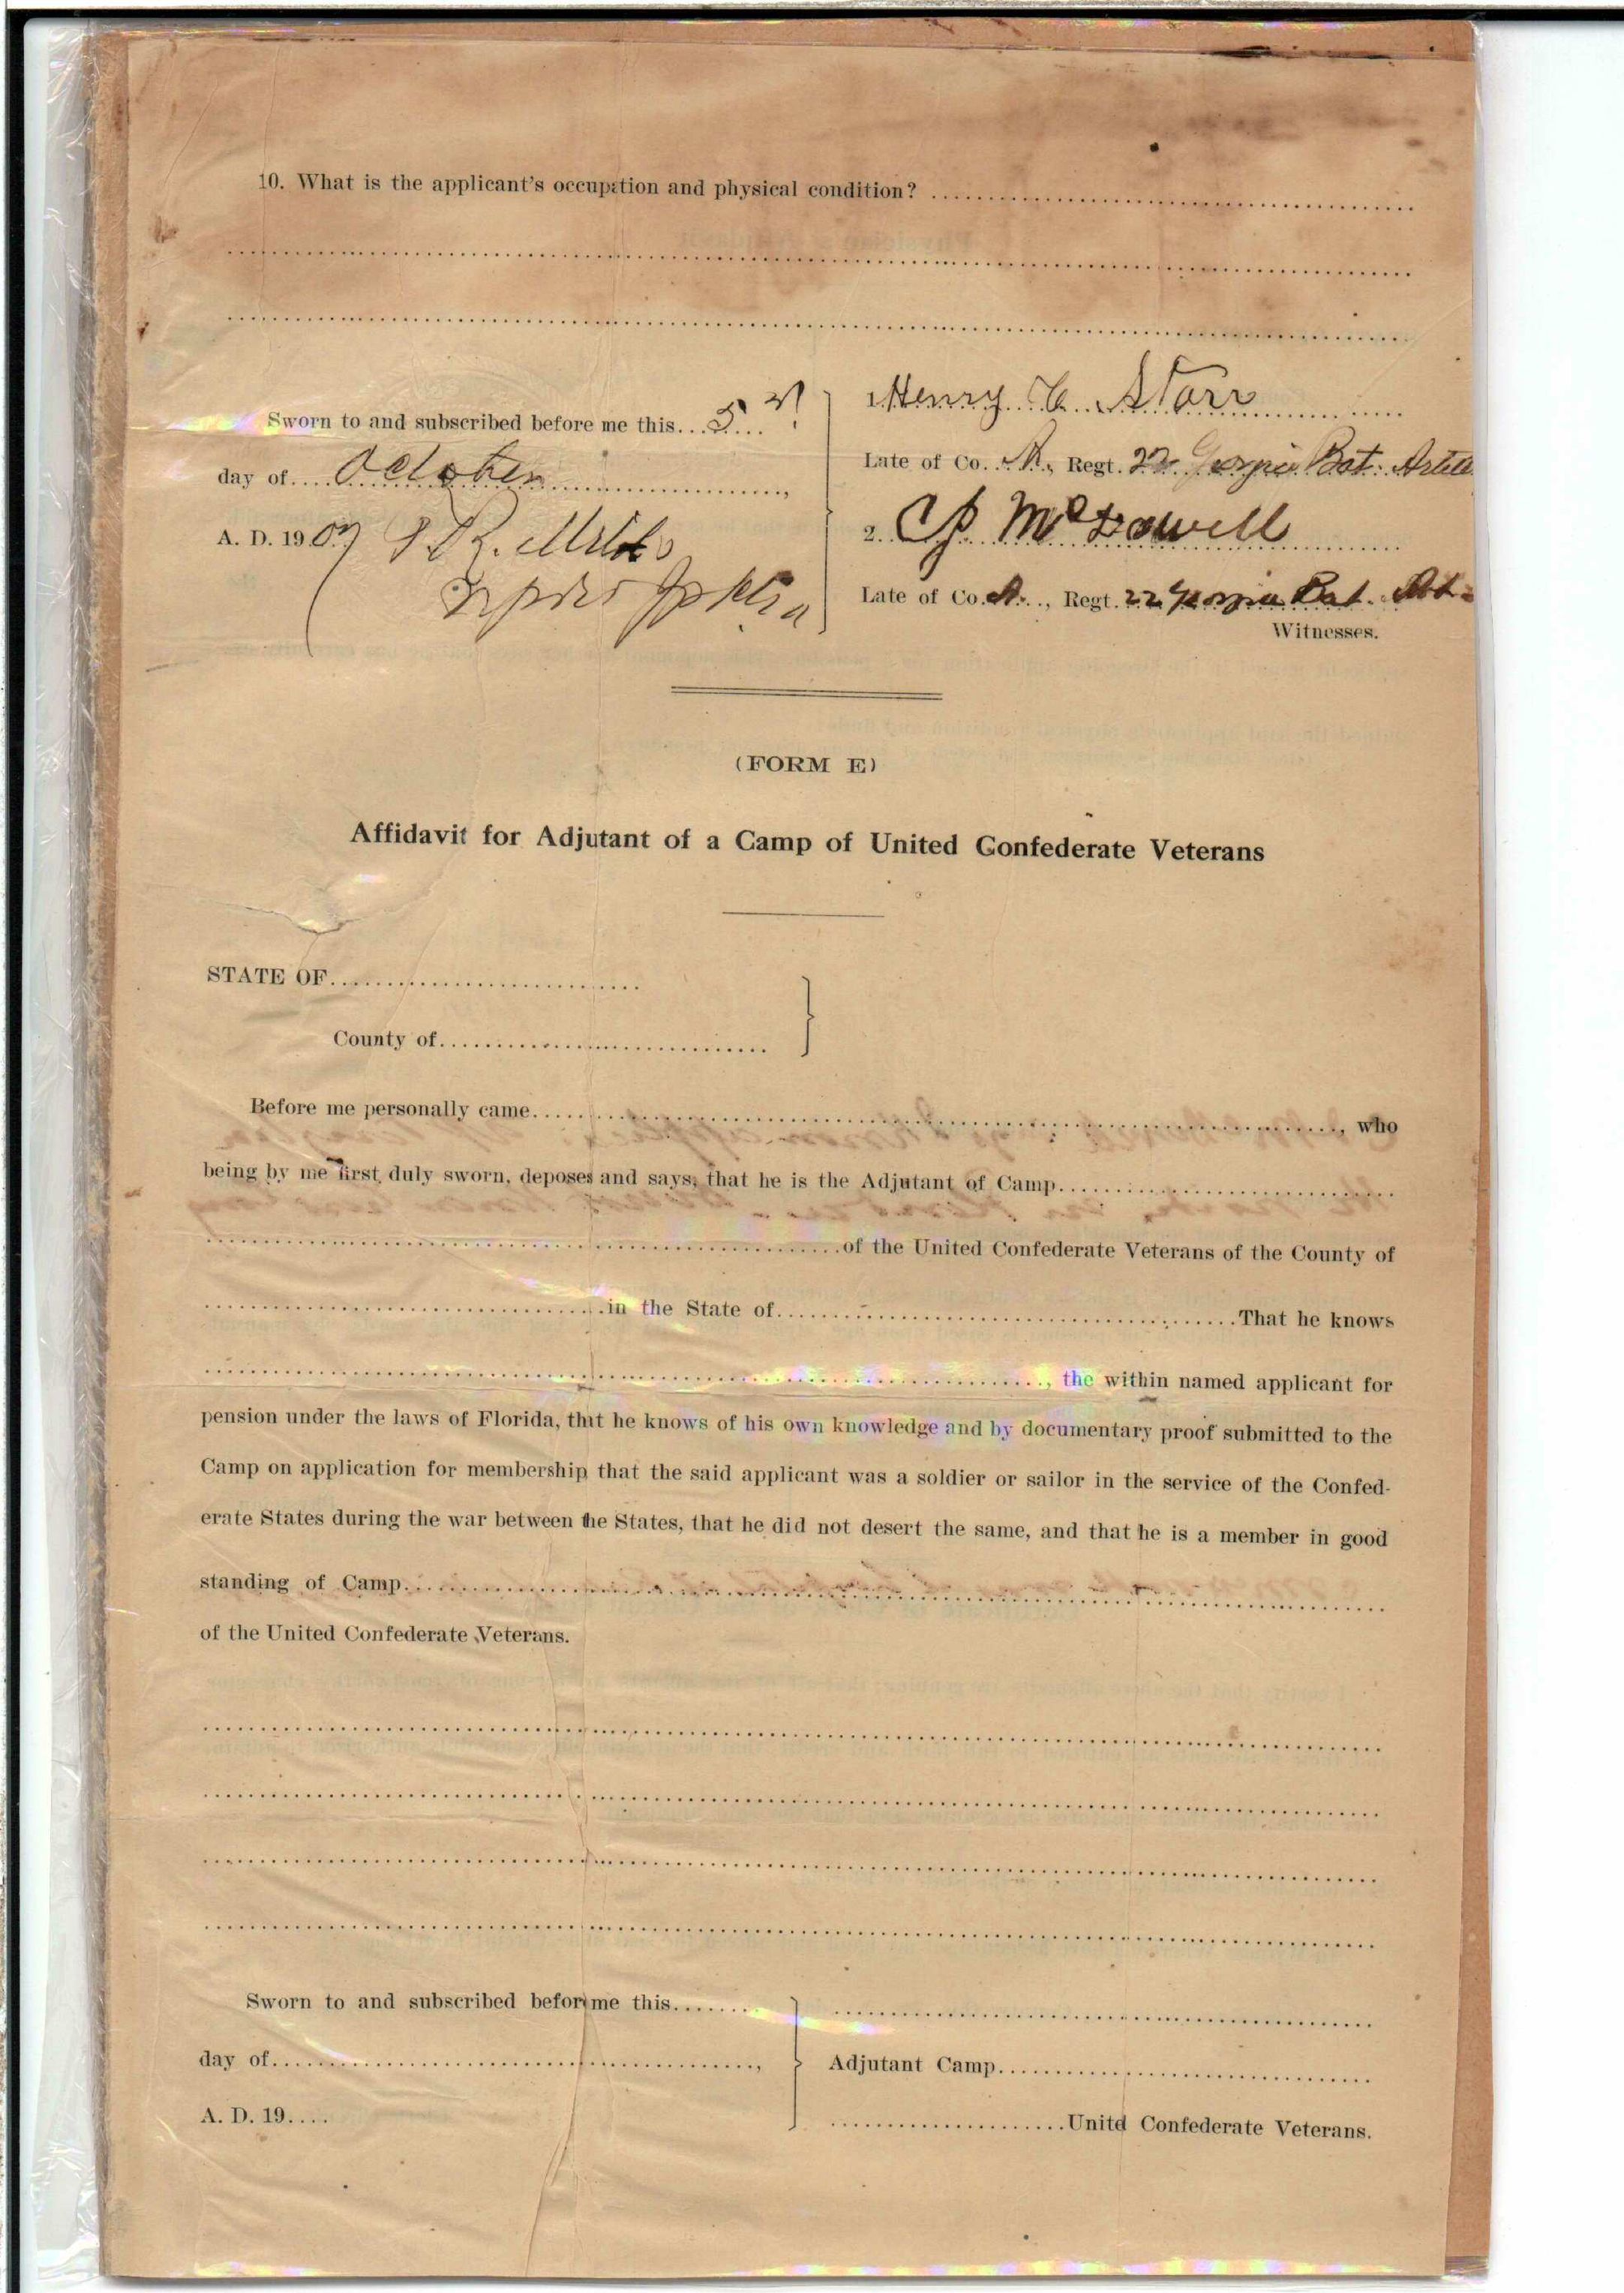 10. What is the applicant's occupation and physical condition?
Sworn to and subscribed before me this 5
day of October
A. D. 1907
1. Henry C Starr
Late of Co. A., Regt. 22 Georgia Bat. Artill
2. McDowell
Late of Co. A., Regt. 22 Georgia Bat. Art.
Witnesses.
(FORM E)
Affidavit for Adjutant of a Camp of United Confederate Veterans
STATE OF
County of
Before me personally came, who
being by me first duly sworn, deposes and says, that he is the Adjutant of Camp
of the United Confederate Veterans of the County of
in the State of That he knows
, the within named applicant for
pension under the laws of Florida, that he knows of his own knowledge and by documentary proof submitted to the
Camp on application for membership that the said applicant was a soldier or sailor in the service of the Confed-
erate States during the war between the States, that he did not desert the same, and that he is a member in good
standing of Camp
of the United Confederate Veterans.
Sworn to and subscribed before me this
day of,
A. D. 19
Adjutant Camp
Unitd Confederate Veterans.